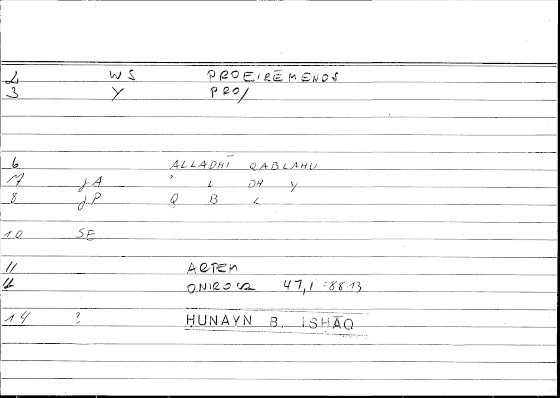 2 WS PROEIRĒMENOS
3 Y PRO/
6 ALLADHĪ QABLAHU
7 JA ' L DH Y
8 JP Q B L
10 SE
11 ARTEM
12 ONIROCR 47,1 : 88 13
14 ? HUNAYN B. ISHĀQ